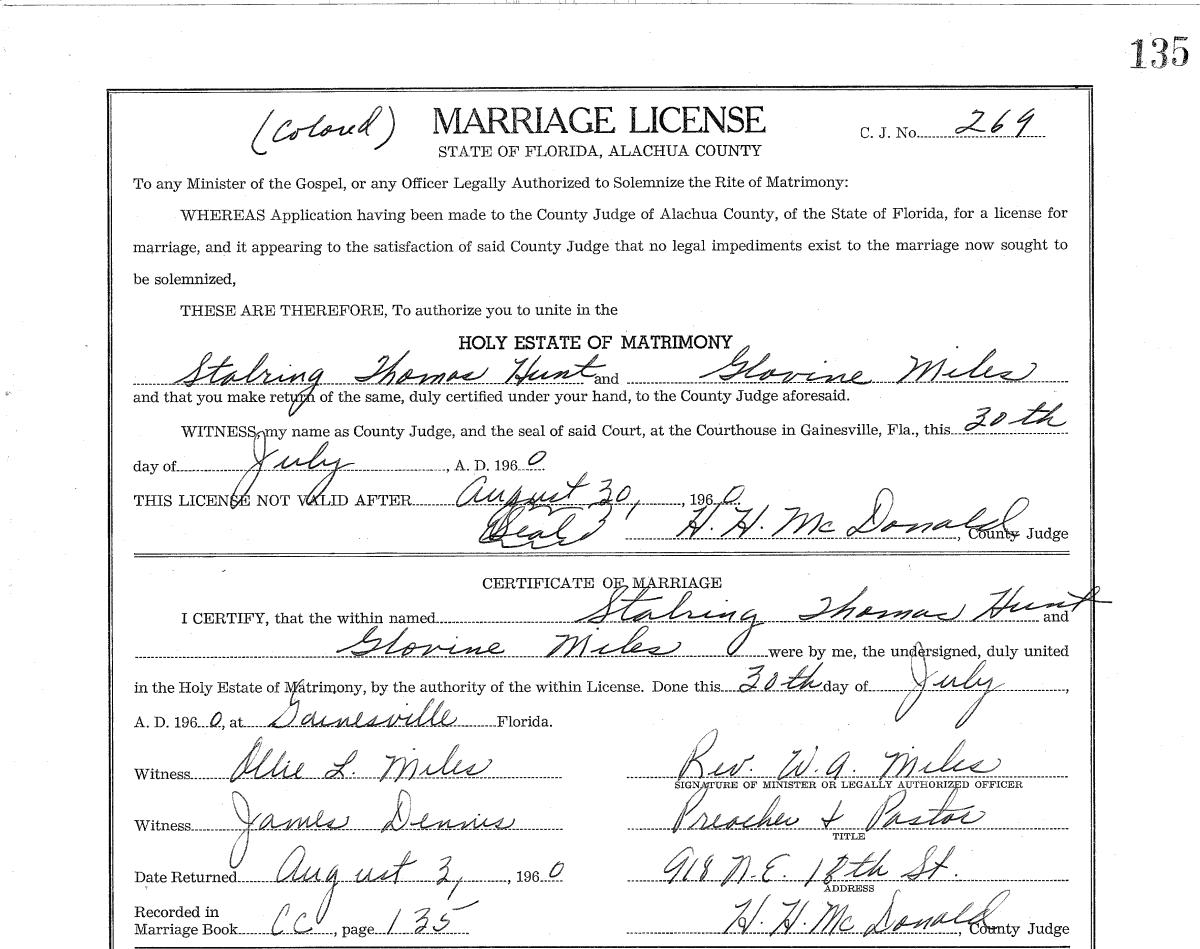 135
(Colored) MARRIAGE LICENSE C. J. No. 269
STATE OF FLORIDA, ALACHUA COUNTY
To any Minister of the Gospel, or any Officer Legally Authorized to Solemnize the Rite of Matrimony:
WHEREAS Application having been made to the County Judge of Alachua County, of the State of Florida, for a license for
marriage, and it appearing to the satisfaction of said County Judge that no legal impediments exist to the marriage now sought to
be solemnized,
THESE ARE THEREFORE, To authorize you to unite in the
HOLY ESTATE OF MATRIMONY
Stabring Thomas Hunt and Glovine Miles
and that you make return of the same, duly certified under your hand, to the County Judge aforesaid.
WITNESS, my name as County Judge, and the seal of said Court, at the Courthouse in Gainesville, Fla., this 30th
day of July, A. D. 1960
THIS LICENSE NOT VALID AFTER August 30, , 1960.
Seal H. H. McDonald, County Judge
CERTIFICATE OF MARRIAGE
I CERTIFY, that the within named Stabring Thomas Hunt and
Glovine Miles were by me, the undersigned, duly united
in the Holy Estate of Matrimony, by the authority of the within License. Done this 30th day of July,
A. D. 1960, at Gainesville Florida.
Witness Ollie L. Miles Rev. W. A. Miles
SIGNATURE OF MINISTER OR LEGALLY AUTHORIZED OFFICER
Witness James Dennis Preacher & Pastor
TITLE
Date Returned August 3, , 1960 918 N.E. 18th St.
ADDRESS
Recorded in
Marriage Book CC, page 135 H. H. McDonald County Judge